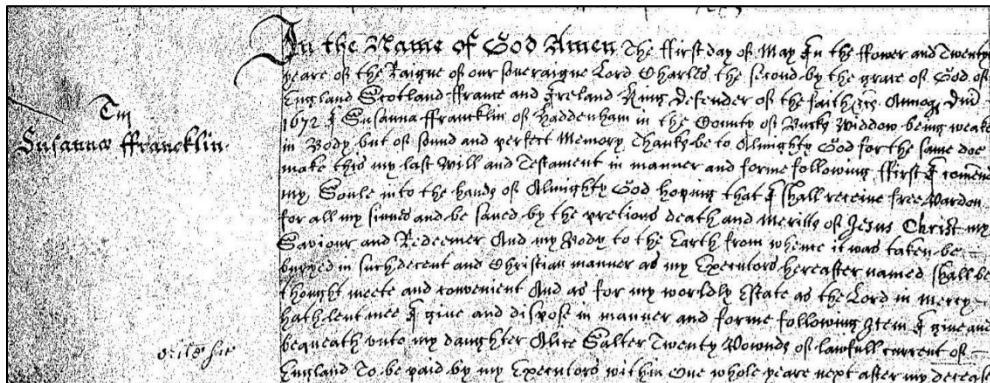 Tm
Susannae ffrancklin
In the Name of God Amen The ffirst day of May In the ffower and Twenty
yeare of the Raigne of our soveraigne Lord Charles the second by the grace of God of
England Scotland ffrance and Ireland King Defender of the faith &c Annoq Dni
1672 I Susanna ffrancklin of Haddenham in the County of Bucks Widdow being weake
in Body but of sound and perfect Memory Thanks be to Almighty God for the same doe
make this my last Will and Testament in manner and forme following ffirst I comend
my Soule into the hands of Almighty God hoping that I shall receive free Pardon
for all my sinnes and be saved by the pretious death and Meritts of Jesus Christ my
Saviour and Redeemer And my Body to the Earth from whence it was taken be
buryed in such decent and Christian manner as my Executors hereafter named shall be
thought meete and convenient And as for my worldly Estate as the Lord in mercy
hath lent mee I give and dispose in manner and forme following Item I give and
beqneath unto my daughter Alice Salter Twenty Pownds of lawfull current of
England To be paid by my Executors within One whole yeare next after my decease